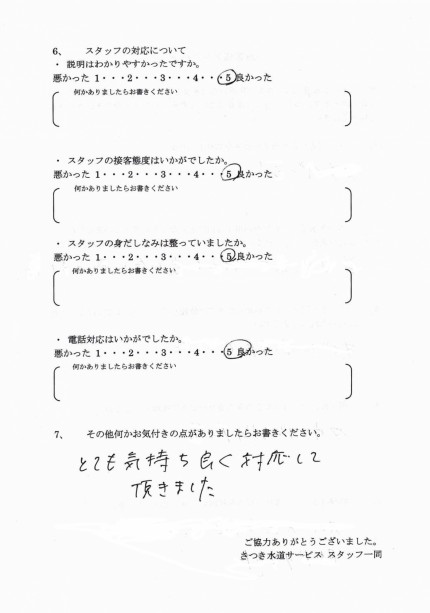 6、 スタッフの対応について
・ 説明はわかりやすかったですか。
悪かった 1・・・2・・・3・・・4・・・5 良かった
何かありましたらお書きください
・ スタッフの接客態度はいかがでしたか。
悪かった 1・・・2・・・3・・・4・・・5 良かった
何かありましたらお書きください
・ スタッフの身だしなみは整っていましたか。
悪かった 1・・・2・・・3・・・4・・・5 良かった
何かありましたらお書きください
・ 電話対応はいかがでしたか。
悪かった 1・・・2・・・3・・・4・・・5 良かった
何かありましたらお書きください
7、 その他何かお気付きの点がありましたらお書きください。
とても気持ち良く対応して
頂きました
ご協力ありがとうございました。
さつき水道サービス スタッフ一同